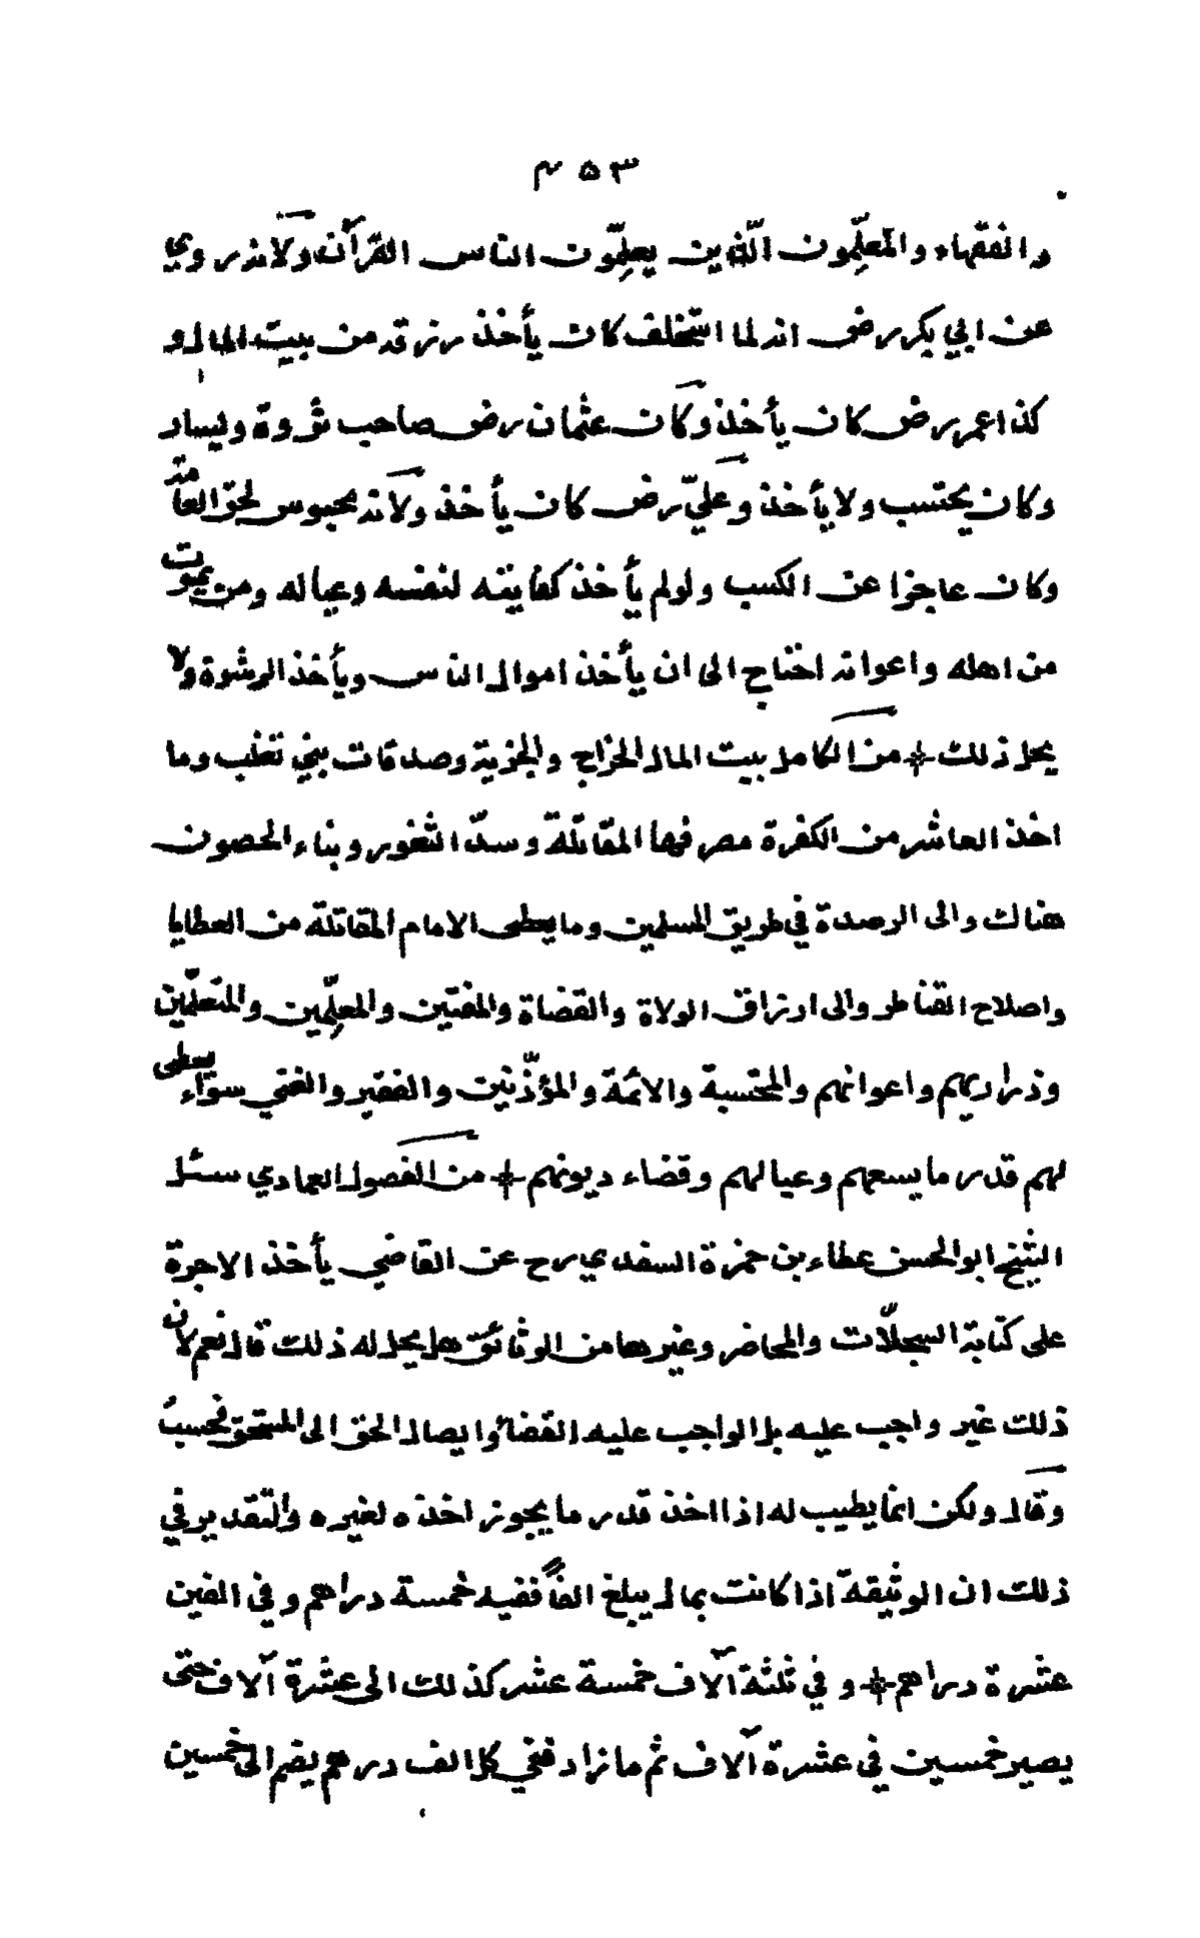 ۴۵۳
والفقهاء والمعلّمون الّذين يعلّمون الناس القرآن ولانه روي
عن ابي بكر رض انه لما استخلف كان يأخذ رزقه من بيت المال و
كذا عمر رض كان يأخذ وكان عثمان رض صاحب ثروة ويسار
وكان يحتسب ولا يأخذ وعليّ رض كان يأخذ ولانه محبوس لحق العامة
وكان عاجزا عن الكسب ولو لم يأخذ كفايته لنفسه وعياله ومن يموت
من اهله واعوانه احتاج الى ان يأخذ اموال الناس ويأخذ الرشوة ولا
يحل ذلك ۞ من الكامل بيت المال الخراج والجزية وصدقات بني تغلب وما
اخذ العاشر من الكفرة مصرفها المقاتلة وسدّ الثغور وبناء الحصون
هناك والى الرصدة في طريق المسلمين وما يعطى الامام المقاتلة من العطايا
واصلاح القناطر والى ارزاق الولاة والقضاة والمفتين والمعلّمين والمتعلّمين
وذراريهم واعوانهم والمحتسبة والائمة والمؤذّنين والفقير والغني سواء يعطى
لهم قدر ما يسعهم وعيالهم وقضاء ديونهم ۞ من الفصول العمادي سئل
الشيخ ابو الحسن عطاء بن حمزة السغدي رح عن القاضي يأخذ الاجرة
على كتابة السجلّات والمحاضر وغيرها من الوثائق هل يحل له ذلك قال نعم لان
ذلك غير واجب عليه بل الواجب عليه القضاء وايصال الحق الى المستحق فحسب
وقال ولكن انما يطيب له اذا اخذ قدر ما يجوز اخذه لغيره والتقدير في
ذلك ان الوثيقة اذا كانت بمال يبلغ الفاً ففيه خمسة دراهم وفي الفين
عشرة دراهم ۞ و في ثلثة آلاف خمسة عشر كذلك الى عشرة آلاف حتى
يصير خمسين في عشرة آلاف ثم ما زاد ففي كل الف درهم يضم الى خمسين